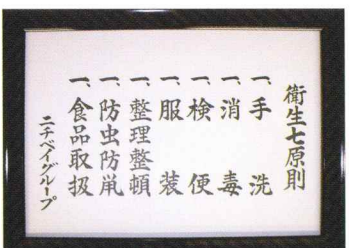 衛生七原則
一、手洗
一、消毒
一、検便
一、服装
一、整理整頓
一、防虫防鼡
一、食品取扱
ニチベイグループ